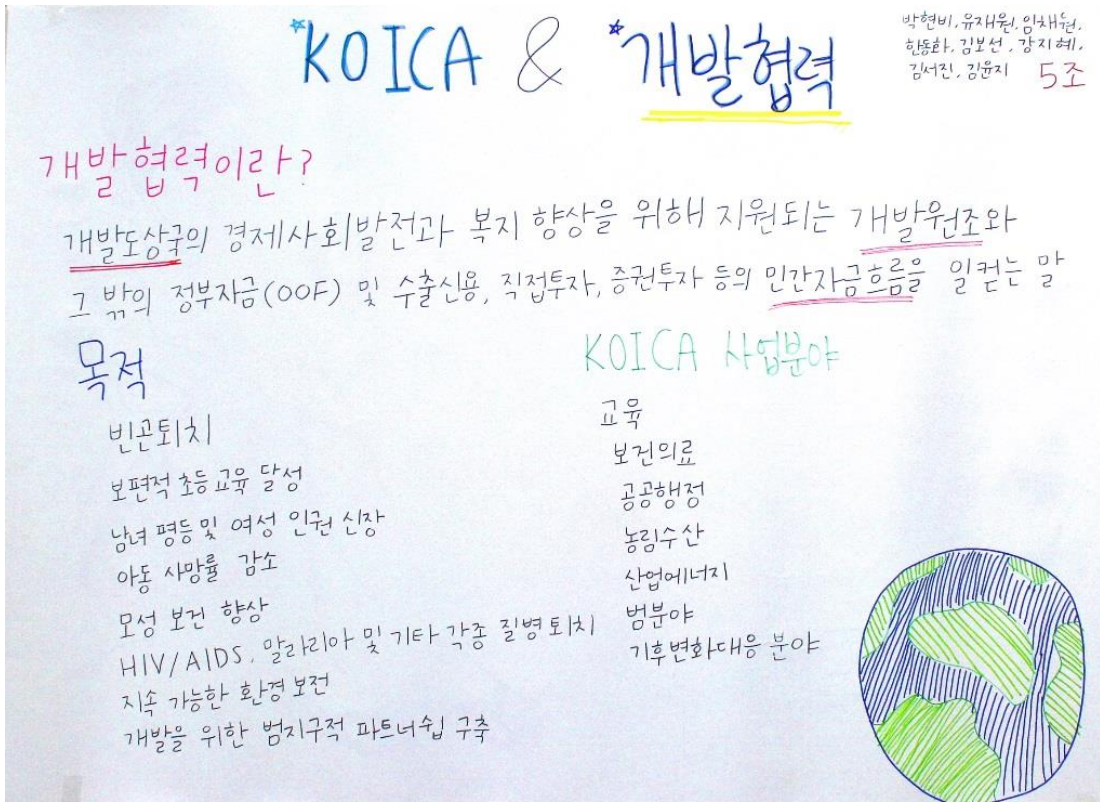 *KOICA & *개발협력
박현비, 유재원, 임채원,
한동화, 김보선, 강지혜,
김서진, 김윤지 5조
개발협력이란?
개발도상국의 경제사회발전과 복지 향상을 위해 지원되는 개발원조와
그 밖의 정부자금(OOF) 및 수출신용, 직접투자, 증권투자 등의 민간자금흐름을 일컫는 말
목적
빈곤퇴치
보편적 초등교육 달성
남녀 평등 및 여성 인권 신장
아동 사망률 감소
모성 보건 향상
HIV/AIDS, 말라리아 및 기타 각종 질병퇴치
지속 가능한 환경보전
개발을 위한 범지구적 파트너쉽 구축
KOICA 사업분야
교육
보건의료
공공행정
농림수산
산업에너지
범분야
기후변화대응 분야